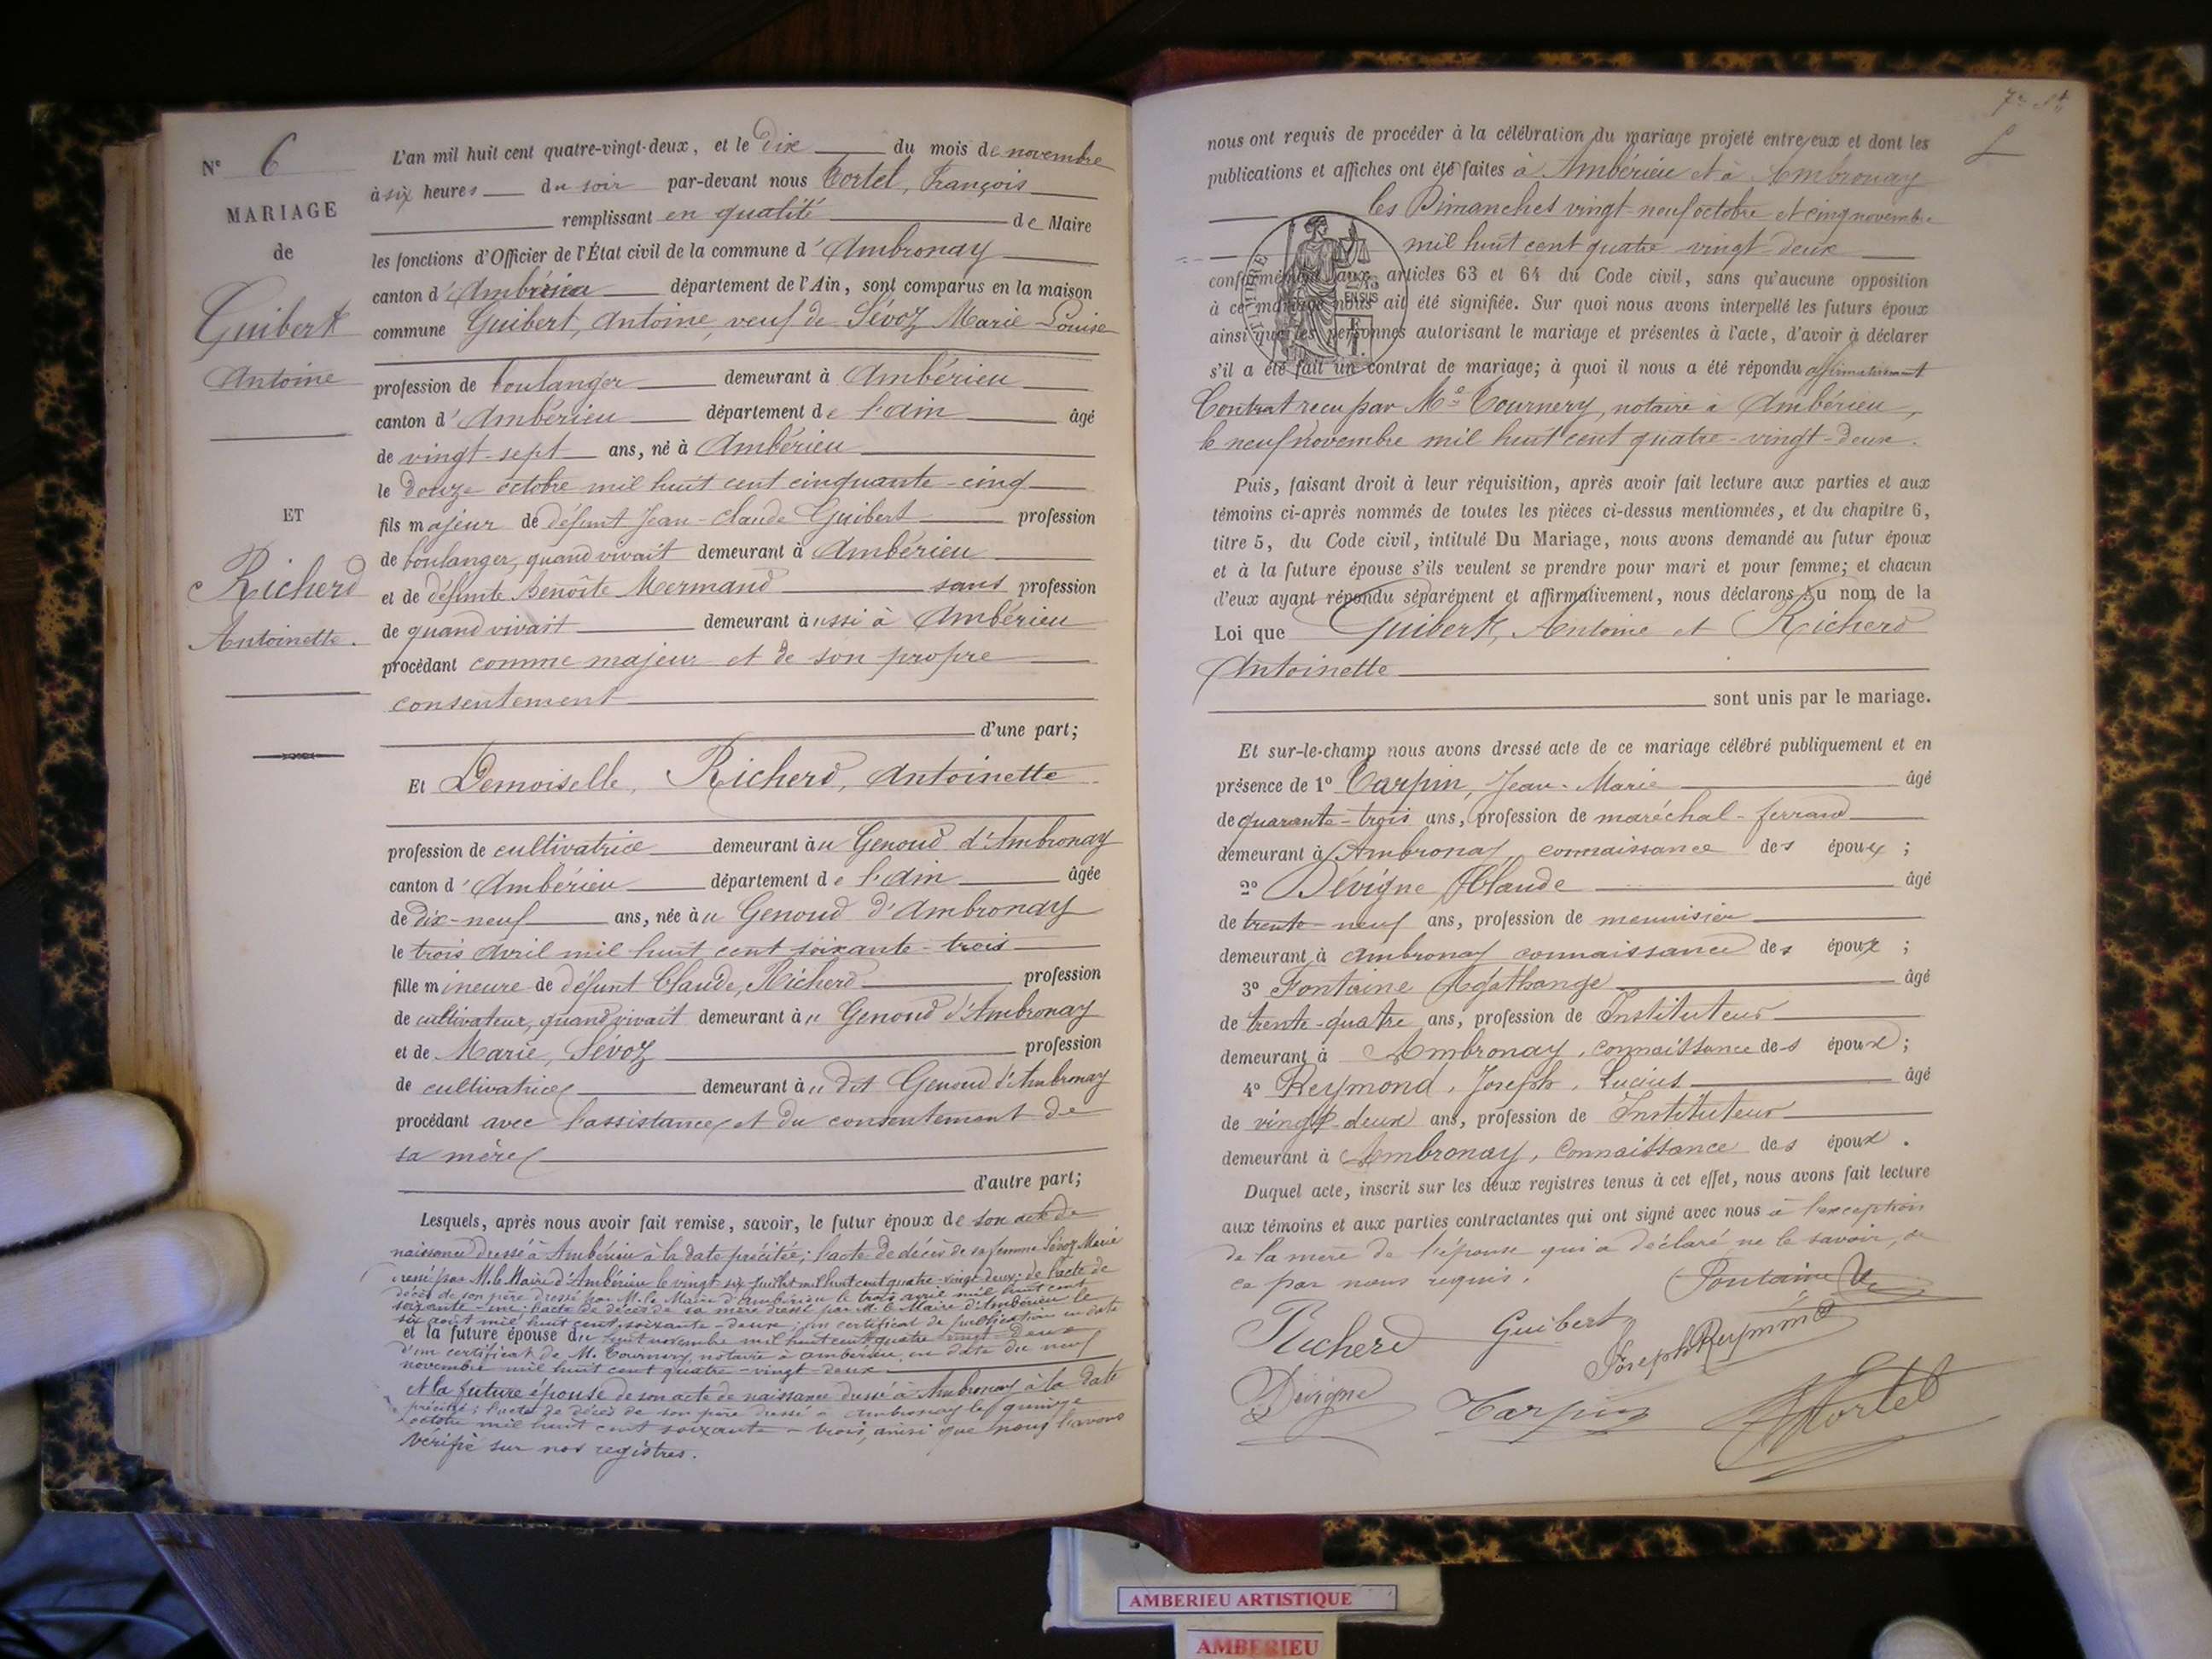 N° 6
MARIAGE
de
Guibert
Antoine
ET
Richerd
Antoinette.
L'an mil huit cent quatre-vingt-deux, et le dix du mois de novembre
à six heures du soir par-devant nous Tortel, François
remplissant en qualité de Maire
les fonctions d'Officier de l'État civil de la commune d'Ambronay
canton d'Ambérieu département de l'Ain, sont comparus en la maison
commune Guibert, Antoine, veuf de Sévoz Marie Louise
profession de boulanger demeurant à Ambérieu
canton d'Ambérieu département de l'Ain âgé
de vingt-sept ans, né à Ambérieu
le douze octobre mil huit cent cinquante-cinq
fils majeur de défunt Jean-Claude Guibert profession
de boulanger, quand vivait demeurant à Ambérieu
et de défunte Benoîte Mermand sans profession
de quand vivait demeurant aussi à Ambérieu
procédant comme majeur et de son propre
consentement
d'une part;
Et Demoiselle, Richerd, Antoinette
profession de cultivatrice demeurant au Genoud d'Ambronay
canton d'Ambérieu département de l'Ain âgée
de dix-neuf ans, née au Genoud d'Ambronay
le trois avril mil huit cent soixante-trois
fille mineure de défunt Claude, Richerd profession
de cultivateur, quand vivait demeurant au Genoud d'Ambronay
et de Marie, Sévoz profession
de cultivatrice demeurant au dit Genoud d'Ambronay
procédant avec l'assistance et du consentement de
sa mère
d'autre part;
Lesquels, après nous avoir fait remise, savoir, le futur époux de son acte de
naissance dressé à Ambérieu à la date précitée; l'acte de décès de sa femme Sévoz Marie
dressé par M. le Maire d'Ambérieu le vingt six juillet mil huit cent quatre-vingt deux; de l'acte de
décès de son père dressé par M. le Maire d'Ambérieu le trois avril mil huit cent
soixante-un; l'acte de décès de sa mère dressé par M. le Maire d'Ambérieu le
six août mil huit cent soixante-deux; un certificat de publication en date
et la future épouse du huit novembre mil huit cent quatre vingt-deux
d'un certificat de M. Tournery, notaire à Ambérieu, en date du neuf
novembre mil huit cent quatre-vingt-deux
et la future épouse de son acte de naissance dressé à Ambronay à la date
précitée; l'acte de décès de son père dressé à Ambronay le quinze
octobre mil huit cent soixante-trois, ainsi que nous l'avons
vérifié sur nos registres.
nous ont requis de procéder à la célébration du mariage projeté entre eux et dont les
publications et affiches ont été faites à Ambérieu et à Ambronay
les Dimanches vingt-neuf octobre et cinq novembre
mil huit cent quatre vingt-deux
conformément aux articles 63 et 64 du Code civil, sans qu'aucune opposition
à ce mariage nous ait été signifiée. Sur quoi nous avons interpellé les futurs époux
ainsi que les personnes autorisant le mariage et présentes à l'acte, d'avoir à déclarer
s'il a été fait un contrat de mariage; à quoi il nous a été répondu affirmativement
Contrat reçu par Me Tournery, notaire à Ambérieu,
le neuf novembre mil huit cent quatre-vingt-deux.
TIMBRE
EN SUS
Puis, faisant droit à leur réquisition, après avoir fait lecture aux parties et aux
témoins ci-après nommés de toutes les pièces ci-dessus mentionnées, et du chapitre 6,
titre 5, du Code civil, intitulé Du Mariage, nous avons demandé au futur époux
et à la future épouse s'ils veulent se prendre pour mari et pour femme; et chacun
d'eux ayant répondu séparément et affirmativement, nous déclarons au nom de la
Loi que Guibert, Antoine et Richerd
Antoinette
sont unis par le mariage.
Et sur-le-champ nous avons dressé acte de ce mariage célébré publiquement et en
présence de 1° Carpin, Jean-Marie âgé
de quarante-trois ans, profession de maréchal-ferrand
demeurant à Ambronay, connaissance des époux;
2° Dévigne Claude âgé
de trente-neuf ans, profession de menuisier
demeurant à Ambronay connaissance des époux;
3° Fontaine Agathange âgé
de trente-quatre ans, profession de Instituteur
demeurant à Ambronay, connaissance des époux;
4° Reymond, Joseph, Lucius âgé
de vingt-deux ans, profession de Instituteur
demeurant à Ambronay, connaissance des époux.
Duquel acte, inscrit sur les deux registres tenus à cet effet, nous avons fait lecture
aux témoins et aux parties contractantes qui ont signé avec nous à l'exception
de la mère de l'épouse qui a déclaré ne le savoir, de
ce par nous requis.
Fontaine
Richerd Guibert
Joseph Reymond
Dévigne Carpin Tortel
AMBERIEU ARTISTIQUE
AMBERIEU